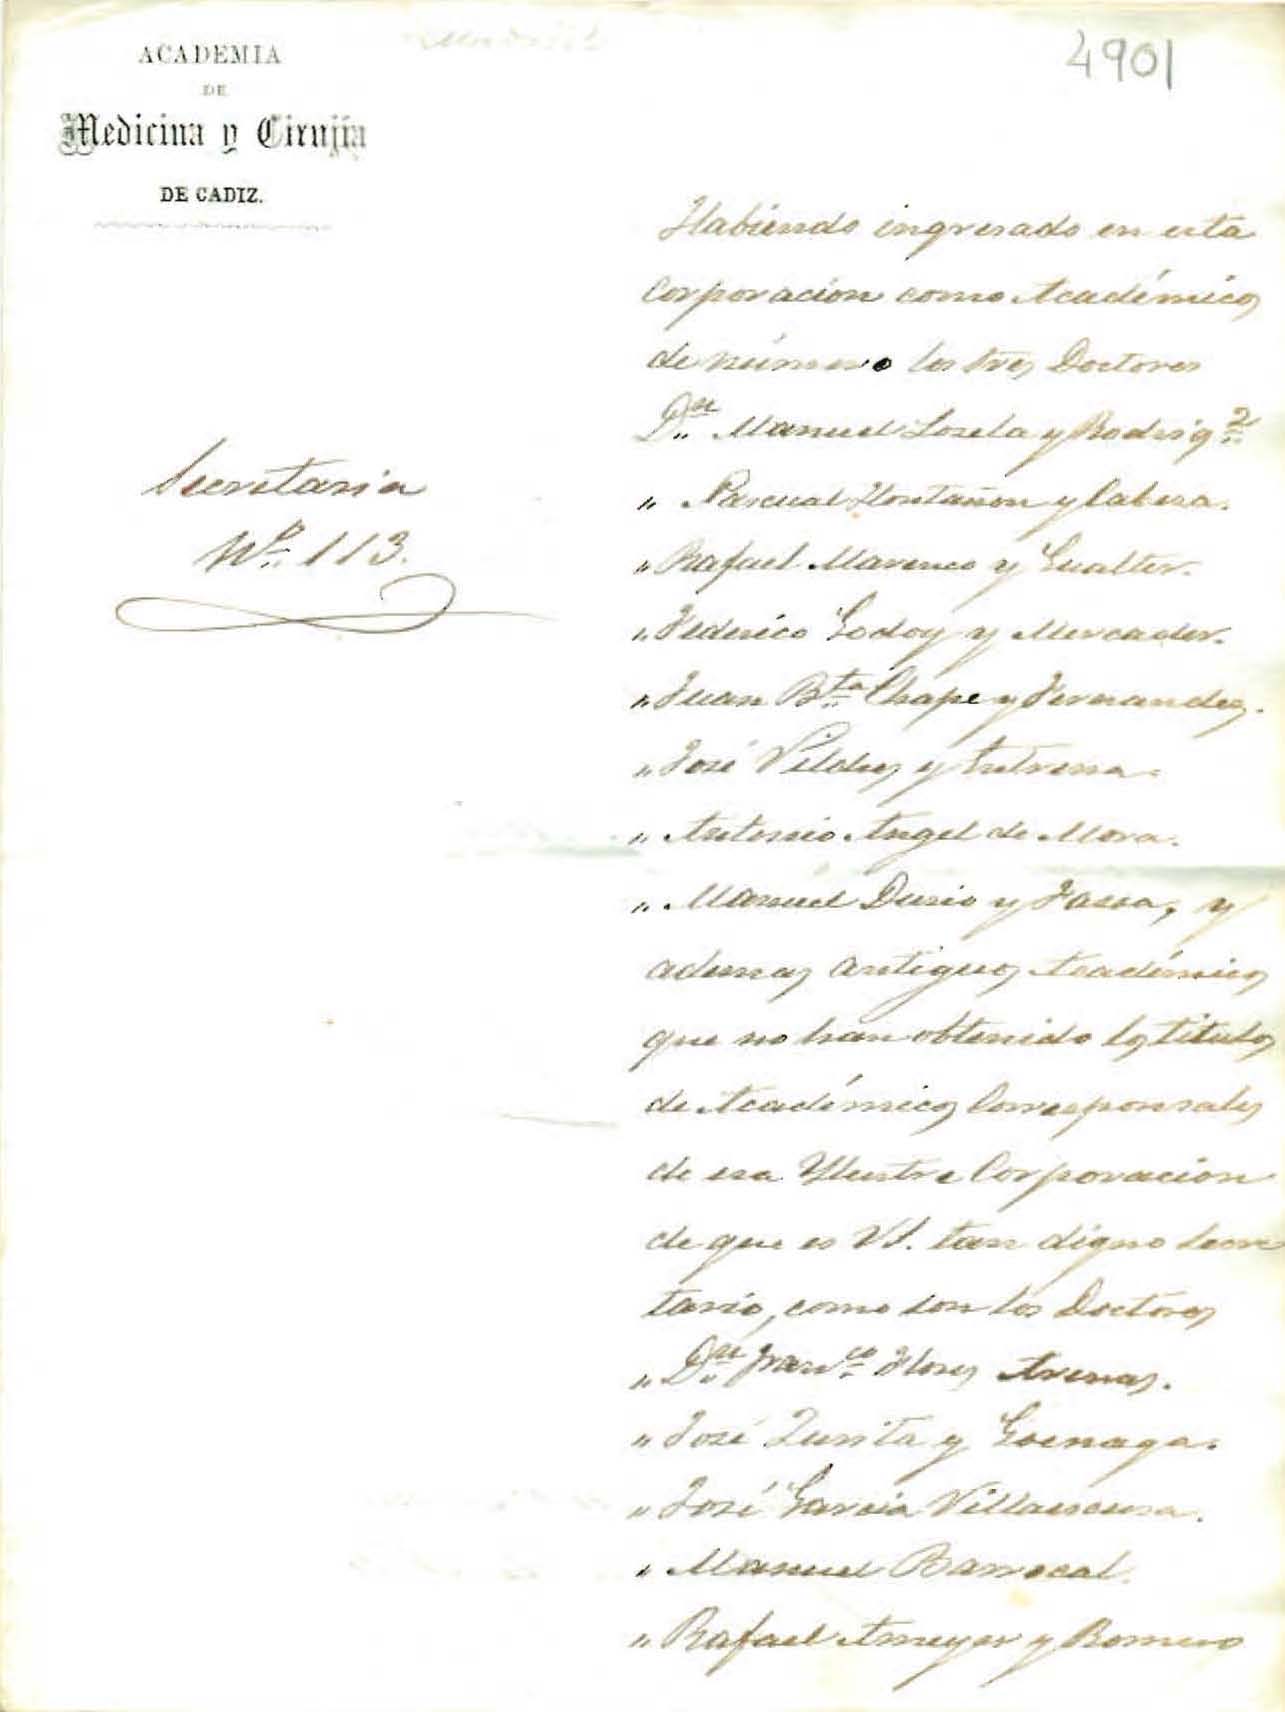 4901
ACADEMIA
DE
Medicina y Cirujía
DE CADIZ.
Secretaria
Nº 113.
Habiendo ingresado en esta
Corporacion como Académicos
de número los Sres Doctores
Dn Manuel y Rodrigz
" Pascual Hontañon y Cabeza.
" Rafael Marenco y Gualter.
" Federico Godoy y Mercader.
" Juan Bta Chape y Fernandez.
" José y
" Antonio Angel de Mora.
" Manuel y , y
ademas antiguos Académicos
que no han obtenido los titulos
de Académicos Corresponsales
de esa Yllustre Corporacion
de que es Vd. tan digno Secre
tario, como son los Doctores
" Dn Franco Flores Arenas.
" José Zurita y Goenaga.
" José Garcia Villaescusa.
" Manuel Barrocal.
" Rafael Ameyer y Romero